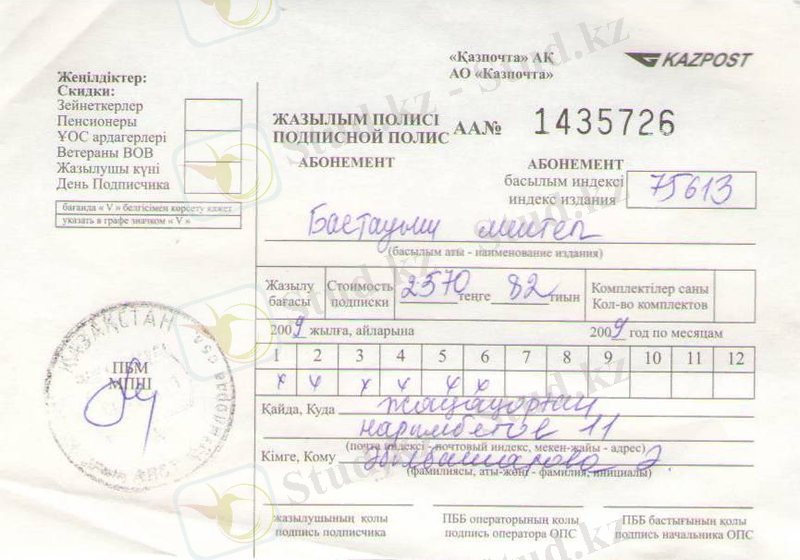 «Қазпочта» АҚ
АО «Казпочта»
KAZPOST
Жеңілдіктер:
Скидки:
Зейнеткерлер
Пенсионеры
ҰОС ардагерлері
Ветераны ВОВ
Жазылушы күні
День Подписчика
бағанда « V » белгісімен көрсету қажет
указать в графе значком « V »
ЖАЗЫЛЫМ ПОЛИСІ
ПОДПИСНОЙ ПОЛИС АА№ 1435726
АБОНЕМЕНТ
АБОНЕМЕНТ
басылым индексі
индекс издания
75613
Бастауыш мектеп
(басылым аты - наименование издания)
Жазылу бағасы
Стоимость подписки
2570 теңге 82 тиын
Комплектілер саны
Кол-во комплектов
2009 жылға, айларына
2009 год по месяцам
1 2 3 4 5 6 7 8 9 10 11 12
ҚАЗАҚСТАН
ПБМ
МПШ
Қайда, Куда Жаңақорған
наримбетов 11
(почта индексі - почтовый индекс, мекен-жайы - адрес)
Кімге, Кому
(фамилиясы, аты-жөні - фамилия, инициалы)
жазылушының қолы
подпись подписчика
ПББ операторының қолы
подпись оператора ОПС
ПББ бастығының қолы
подпись начальника ОПС
Stud.kz - Stud.kz